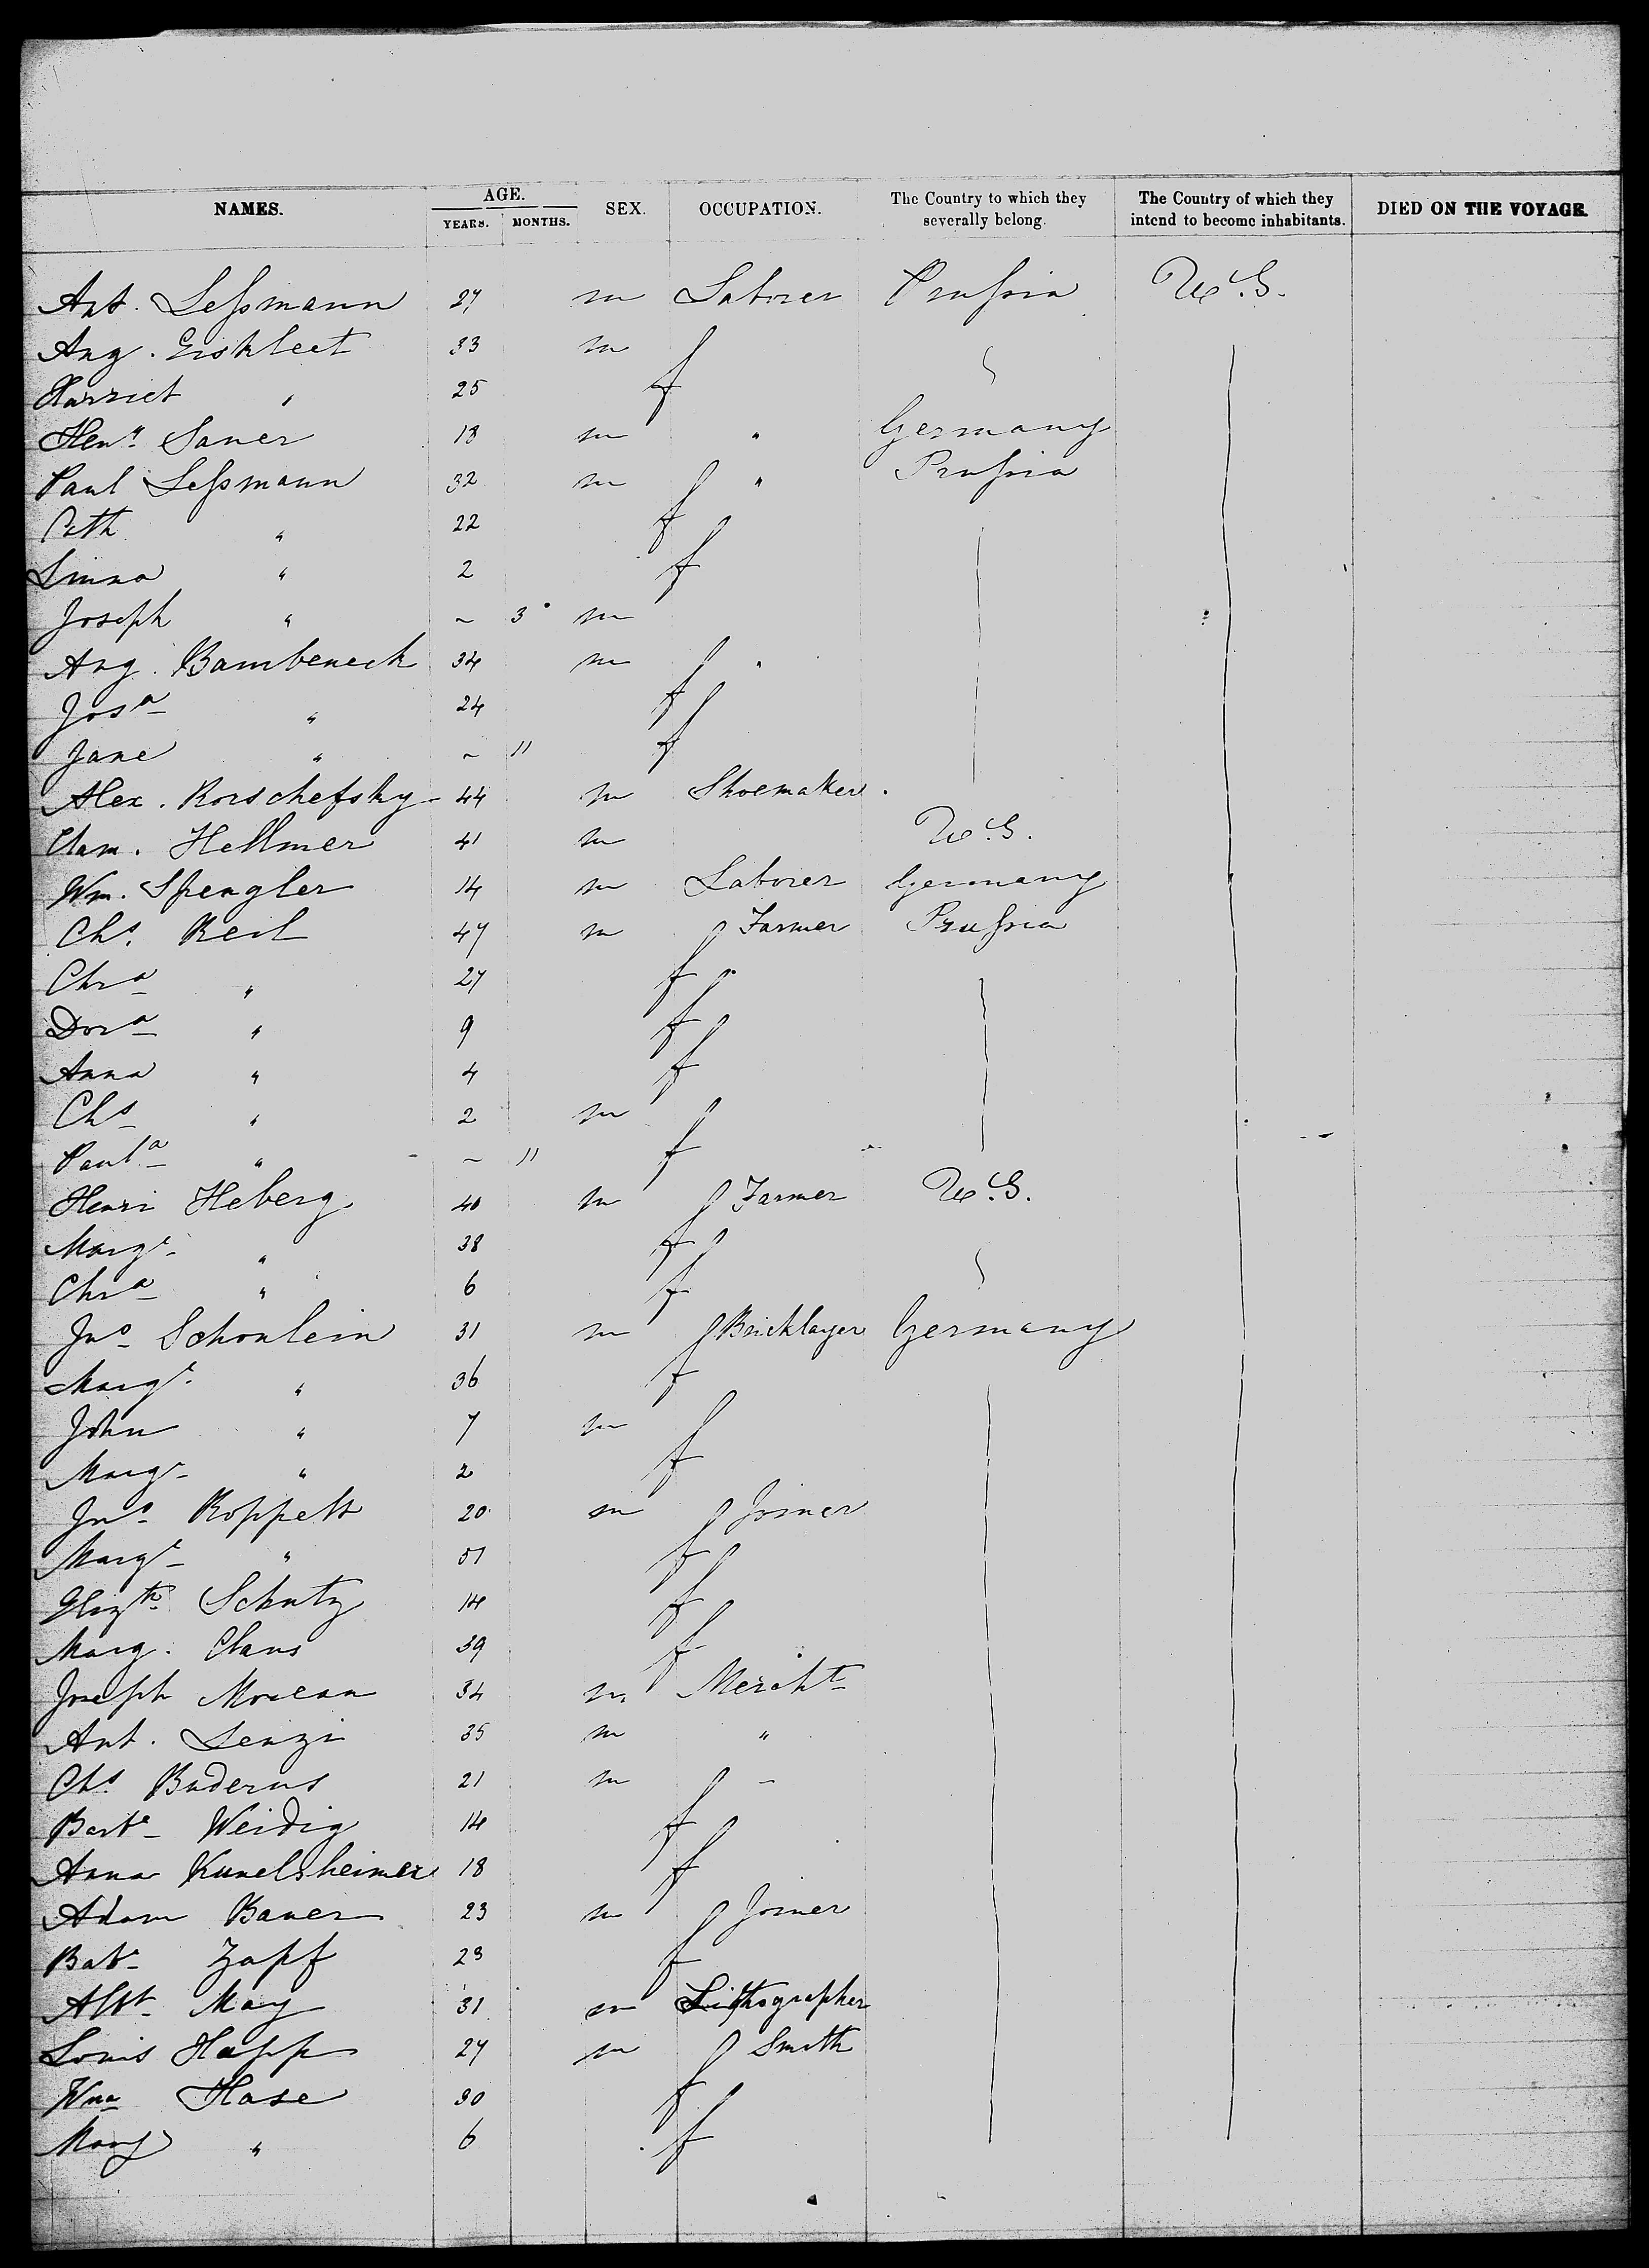 NAMES. AGE. YEARS. MONTHS. SEX. OCCUPATION. The Country to which they severally belong. The Country of which they intend to become inhabitants. DIED ON THE VOYAGE.
Ant. Leßmann 27 m Laborer Prußia U.S.
Aug. Eiskleet 33 m
Harriet " 25 f
Heny Saner 18 m " Germany
Paul Leßmann 32 m " Prußia
Cath " 22 f
Linna " 2 f
Joseph " ~ 3 m
Aug. Bambeneck 34 m "
Josa " 24 f
Jane " ~ 11 f
Alex. Korschefsky 44 m Shoemaker
Clam. Hellmer 41 m U.S.
Wm. Spengler 14 m Laborer Germany
Chs. Keil 47 m Farmer Prußia
Chra " 27 f "
Dora " 9 f
Anna " 4 f
Chs " 2 m
Paula " ~ 11 f
Henri Heberg 40 m Farmer U.S.
Margt " 38 f
Chra " 6 f
Jno Schonlein 31 m Bricklayer Germany
Margt " 36 f
John " 7 m
Margt " 2 f
Jno Koppelt 20 m Joiner
Margt " 51 f
Elizth Schutz 14 f
Marg. Claus 39 f
Joseph Morean 34 m Mercht
Ant. Lenzi 35 m "
Chs Buderus 21 m "
Barba Weidig 14 f
Anna Kunelsheimer 18 f
Adam Bauer 23 m Joiner
Baba Zapf 23 f
Albt May 31 m Lithographer
Louis Happ 27 m Smith
Wma Hase 30 f
Mary " 6 f